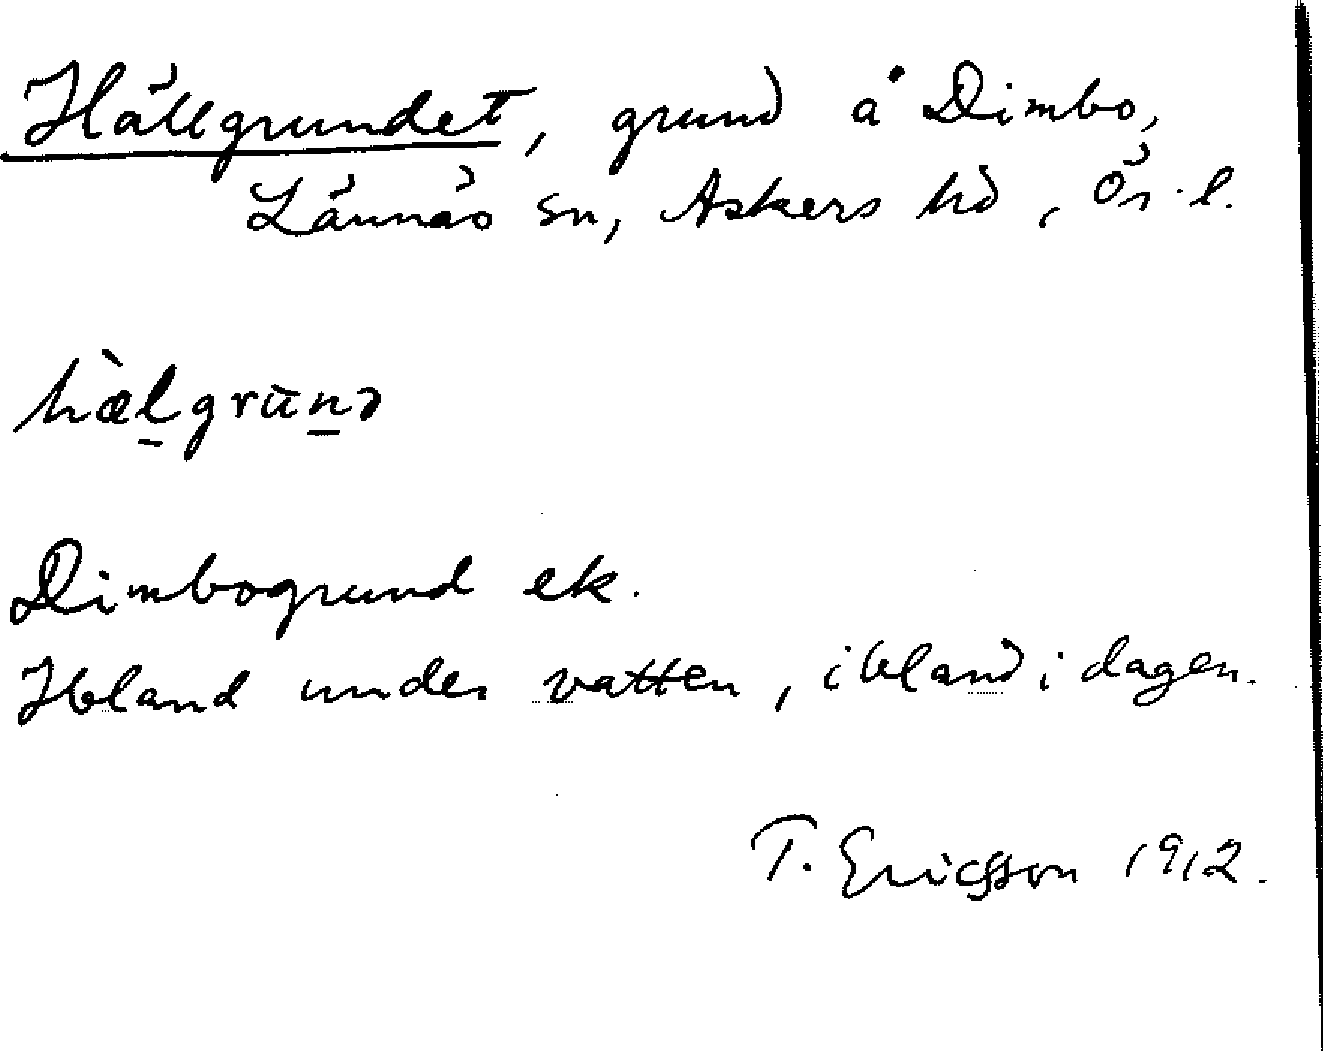 Hällgrundet, grund å Dimbo,
Lännäs sn, Askers hd, Ör. l.
hæ̀l̠grùn̠ə
Dimbogrund ek.
Ibland under vatten, ibland i dagen.
T. Ericsson 1912.